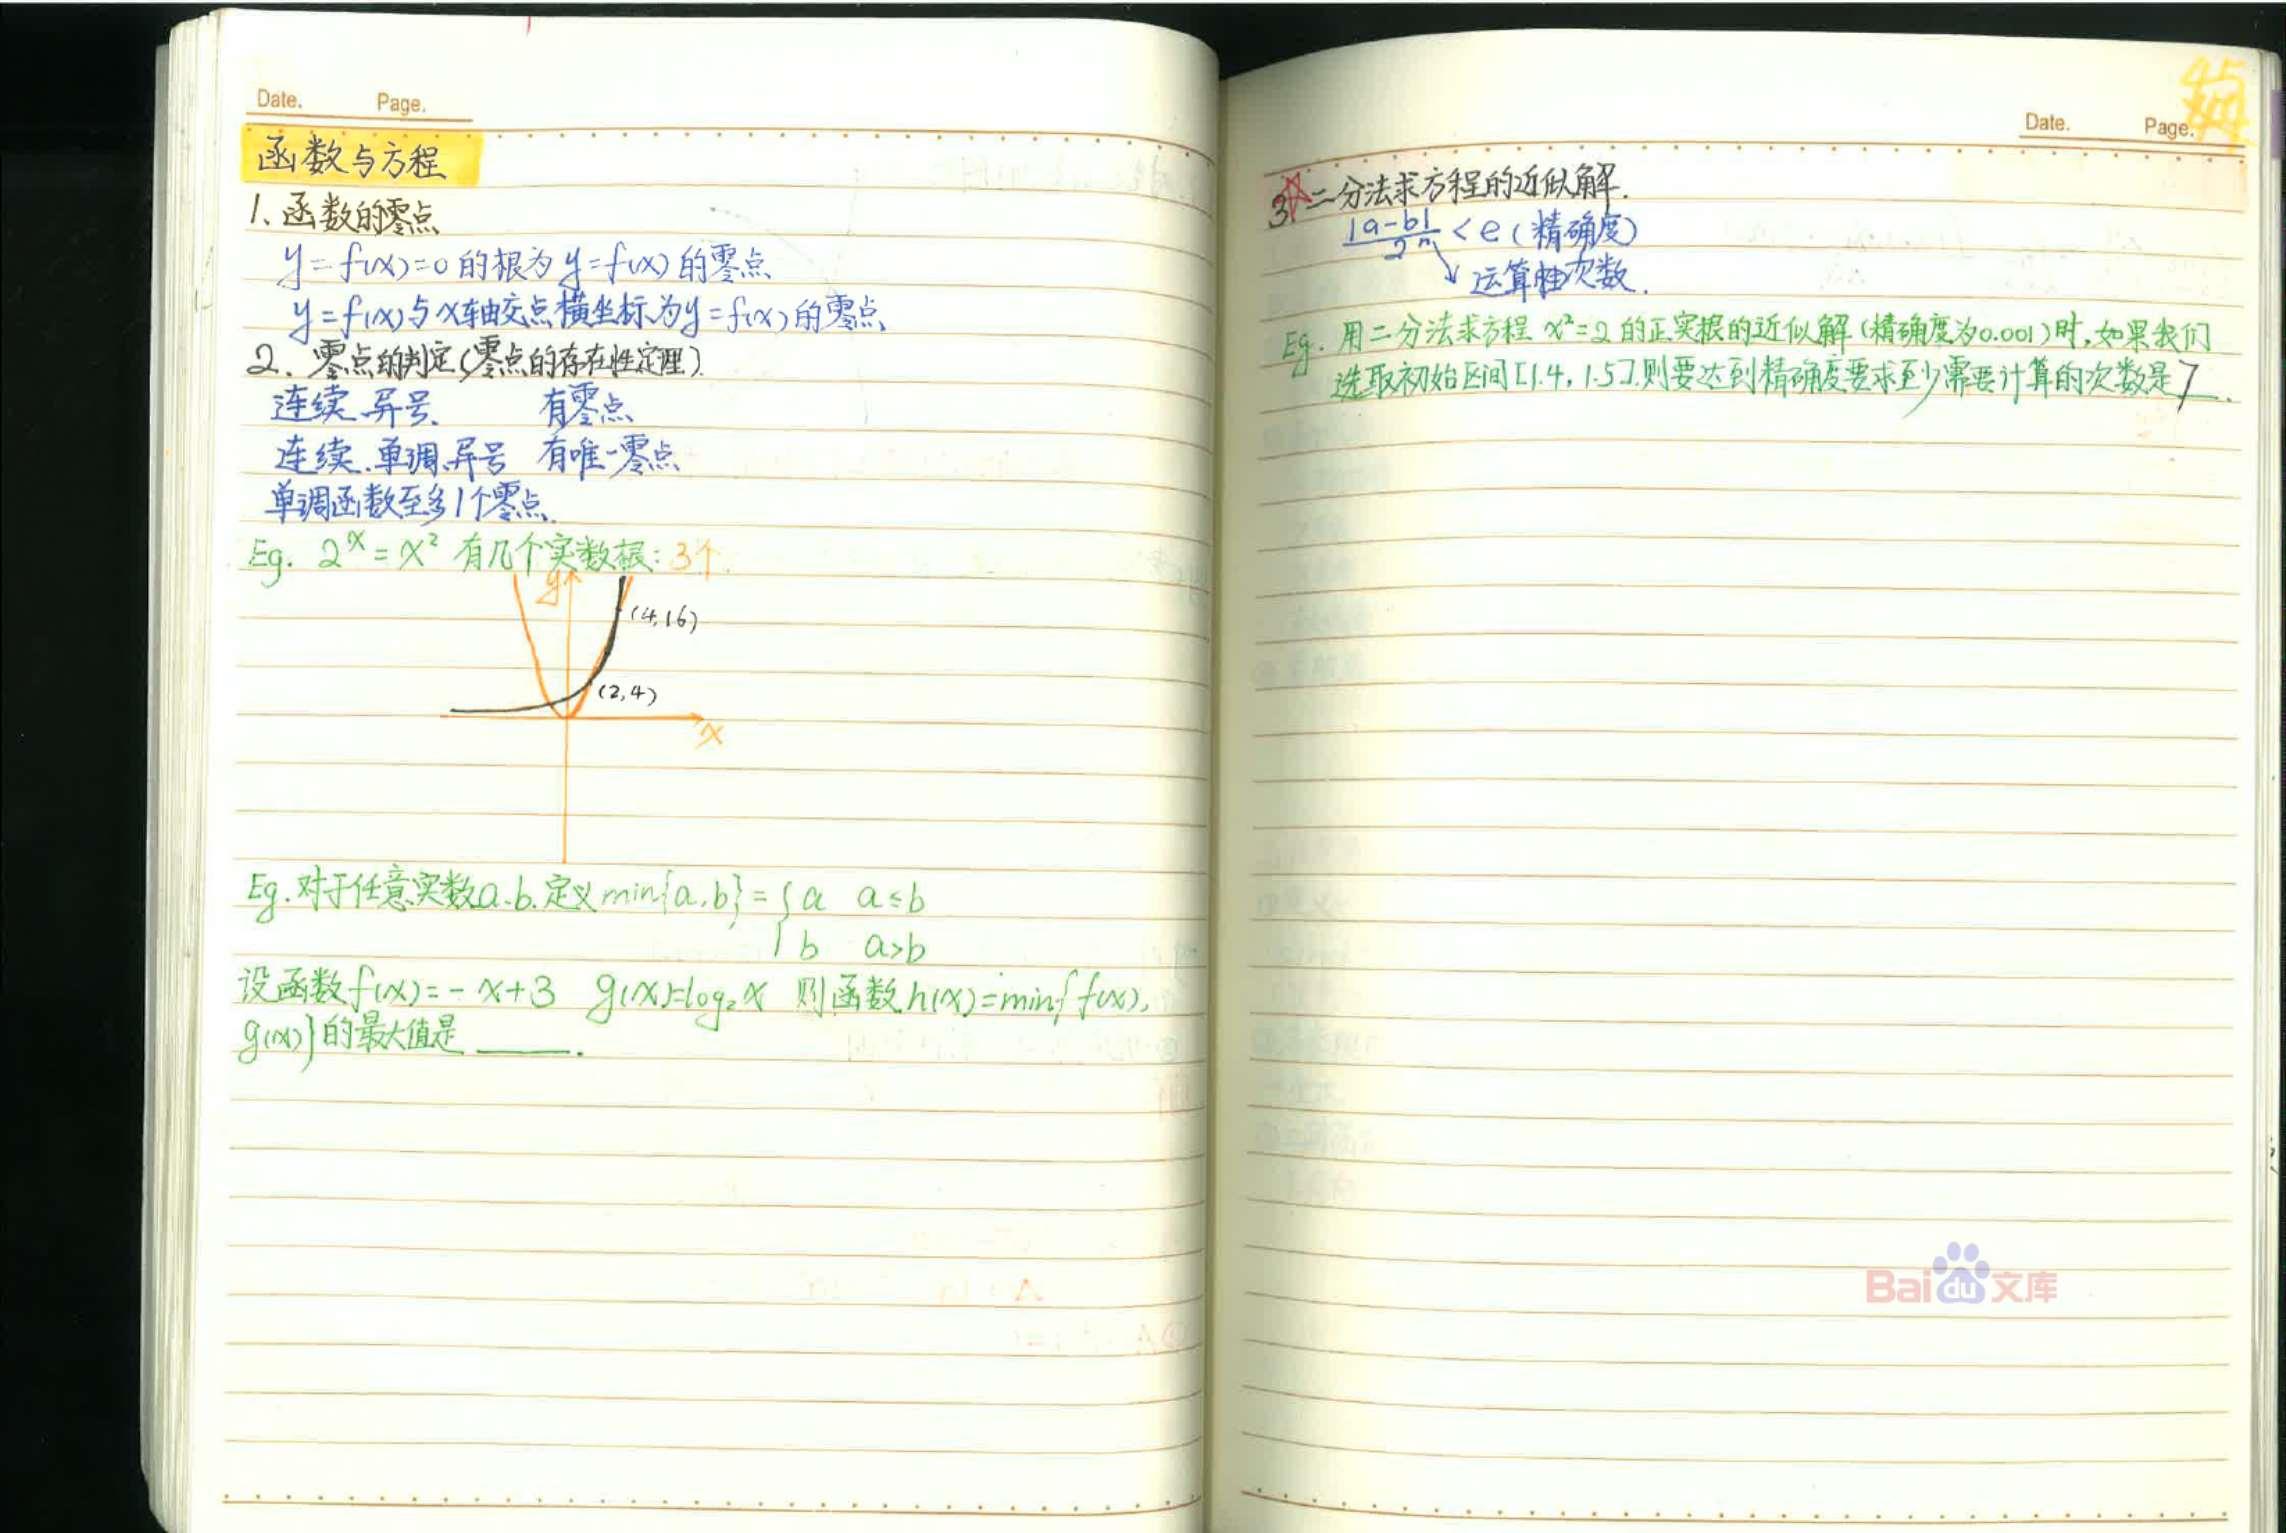 Date. Page.
函数与方程
1、函数的零点
y=f(x)=0的根为y=f(x)的零点
y=f(x)与x轴交点横坐标为y=f(x)的零点
2. 零点的判定(零点的存在性定理).
连续、异号、 有零点
连续、单调、异号 有唯一零点
单调函数至多1个零点.
Eg. 2^x = x² 有几个实数根: 3个.
y
(4,16)
(2,4)
x
Eg. 对于任意实数a、b.定义min{a,b}={a a≤b
b a>b
设函数f(x)=-x+3 g(x)=log₂x 则函数h(x)=min{f(x),
g(x)}的最大值是____.
Date. Page.
3☆二分法求方程的近似解.
|a-b|/2ⁿ < e (精确度)
运算次数.
Eg. 用二分法求方程 x²=2 的正实根的近似解(精确度为0.001)时,如果我们
选取初始区间[1.4, 1.5].则要达到精确度要求至少需要计算的次数是7.
Baidu文库